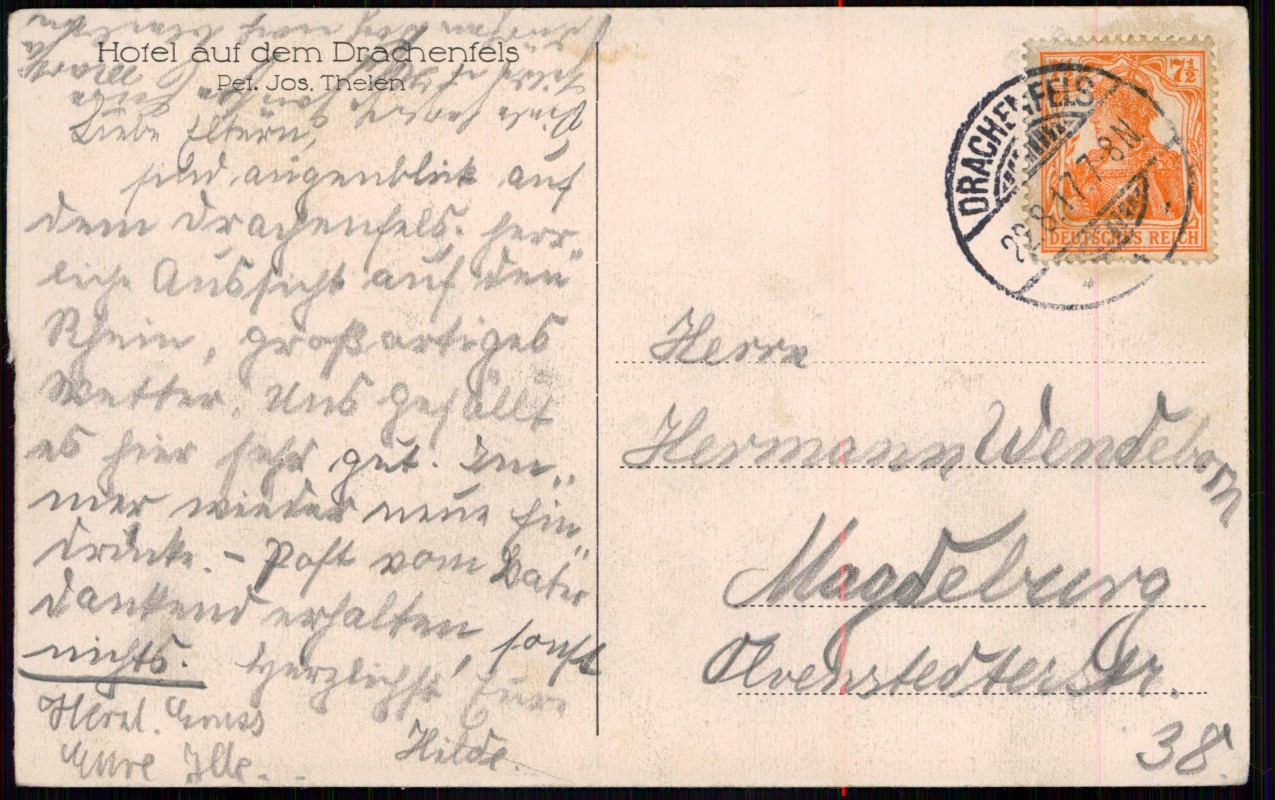 Hotel auf dem Drachenfels
Pet. Jos. Thelen
Liebe Eltern,
sind augenblick auf
dem Drachenfels. Herr„
liche Aussicht auf den
Rhein, großartiges
Wetter. Uns gefällt
es hier sehr gut. Im„
mer wieder neue Ein„
drücke. – Post vom Vater
dankend erhalten, sonst
nichts. Herzlichst Eure
Hilde.
Herzl. Gruss
Eure Ille.
DEUTSCHES REICH
7½
DRACHENFELS
7-8N.
Herrn
Hermann Wendeborn
Magdeburg
Olvenstedterstr.
38.